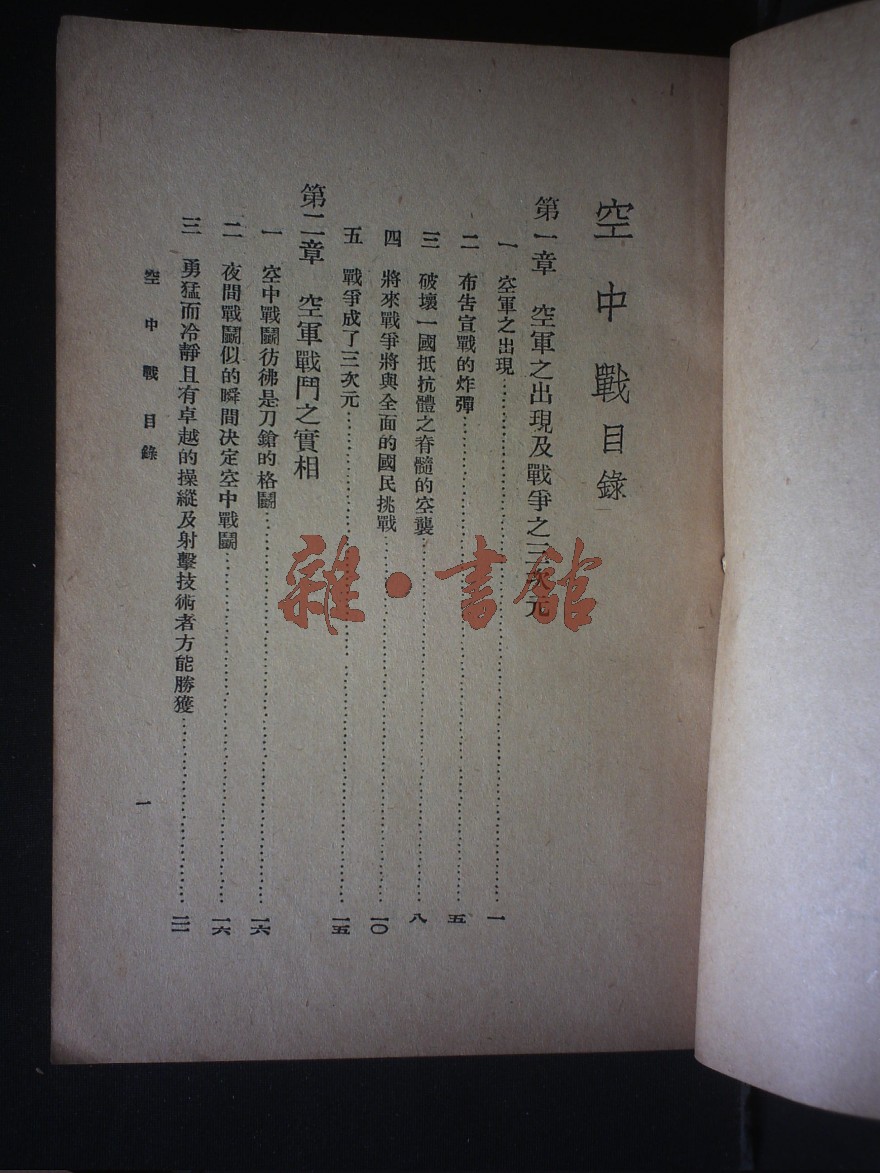 空中戰目錄
第一章 空軍之出現及戰爭之三次元
一 空軍之出現……一
二 布告宣戰的炸彈……五
三 破壞一國抵抗體之脊髓的空襲……八
四 將來戰爭將與全面的國民挑戰……一〇
五 戰爭成了三次元……一五
第二章 空軍戰鬥之實相
一 空中戰鬭彷彿是刀鎗的格鬭……一六
二 夜間戰鬭似的瞬間決定空中戰鬭……一六
三 勇猛而冷靜且有卓越的操縱及射擊技術者方能勝獲……二一
空中戰目錄
一
雜·書館